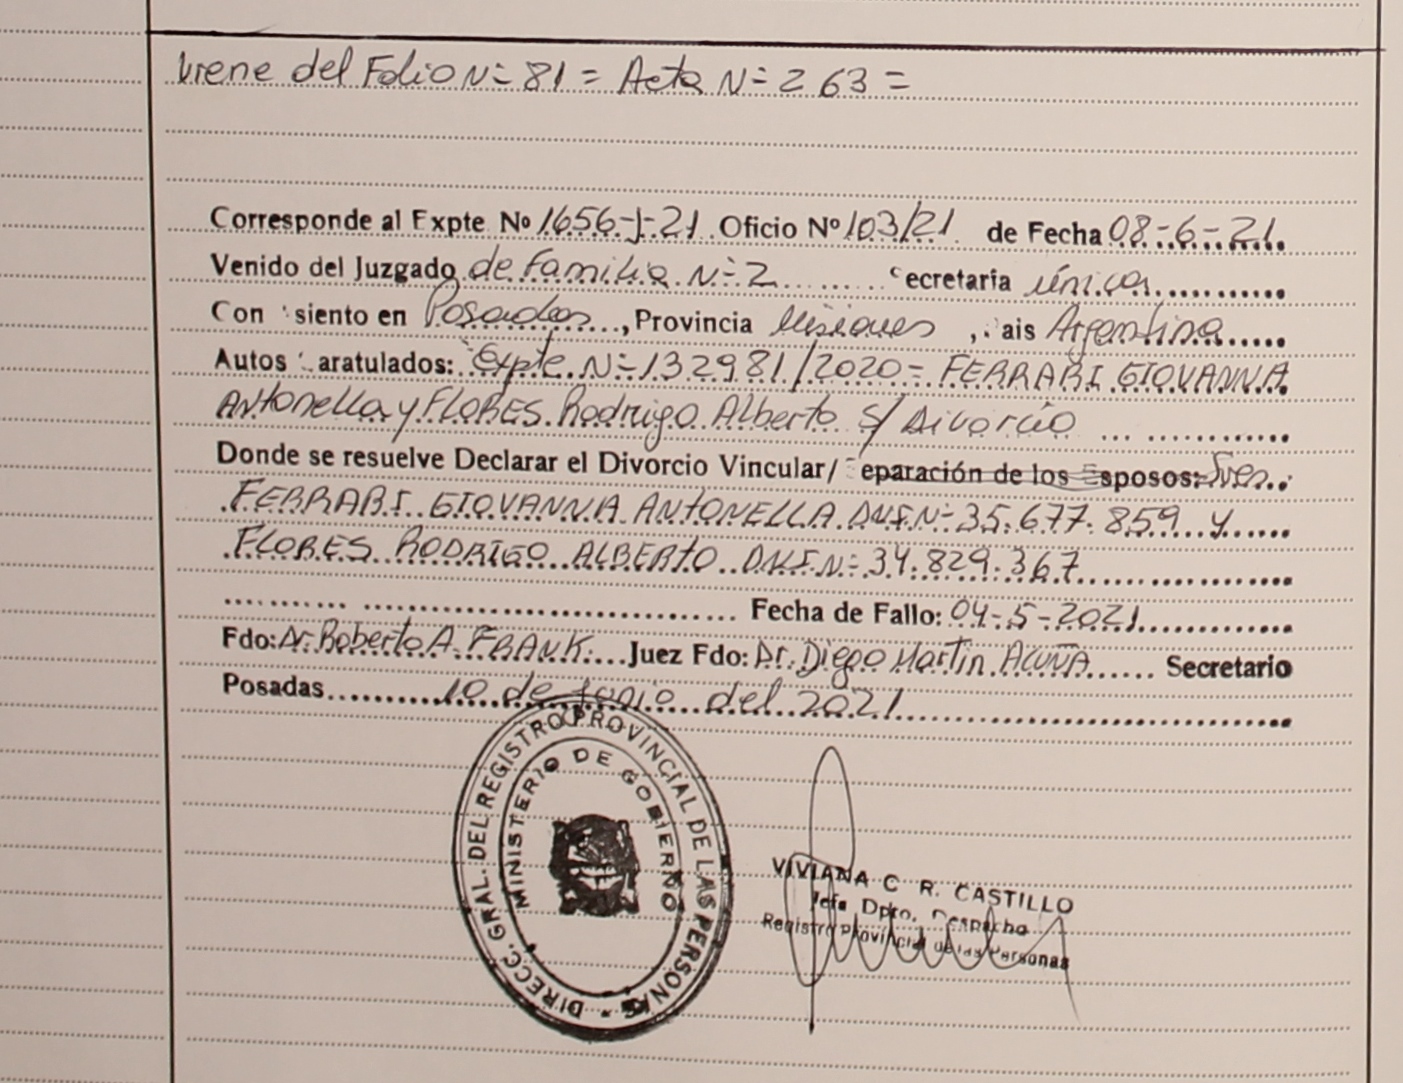 Viene del Folio N= 81 = Acta N= 263 =
Corresponde al Expte Nº 1656-J-21 Oficio Nº 103/21 de Fecha 08-6-21
Venido del Juzgado de Familia N=2 ecretaría única
Con siento en Posadas, Provincia Misiones, ais Argentina
Autos aratulados: Expte N=132981/2020= FERRARI GIOVANNA
Antonella y FLORES Rodrigo Alberto S/ Divorcio
Donde se resuelve Declarar el Divorcio Vincular/ eparación de los Esposos:
FERRARI GIOVANNA ANTONELLA DNI N=35.677.859 y
FLORES RODRIGO ALBERTO DNI N=34.829.367
Fecha de Fallo: 04-5-2021
Fdo: Dr. Roberto A. FRANK Juez Fdo: Dr. Diego Martin ACUÑA Secretario
Posadas 10 de Junio del 2021
DIRECC. GRAL. DEL REGISTRO PROVINCIAL DE LAS PERSONAS
MINISTERIO DE GOBIERNO
VIVIANA C R. CASTILLO
Jefa Dpto. Despacho
Registro Provincial de las Personas